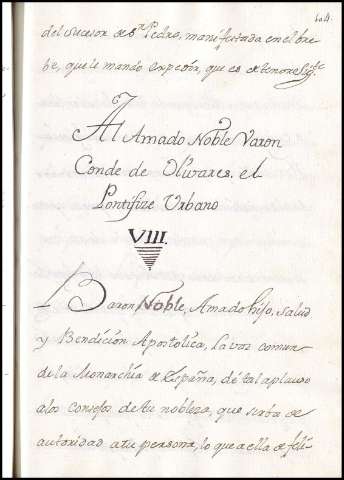 104.
del Sucesor de Sn Pedro, manifestada en el bre-
be, que le mandó expedir, que es del tenor Sigte
Al Amado Noble Varon
Conde de Olivares. el
Pontifize Urbano
VIII.
Baron Noble, Amado hijo, Salud
y Bendición Apostolica, la voz comun
de la Monarchia de España, dé tal aplauso
alos Consejos de tu nobleza, que sirba de
autoridad atu persona, lo que a ella de feli-